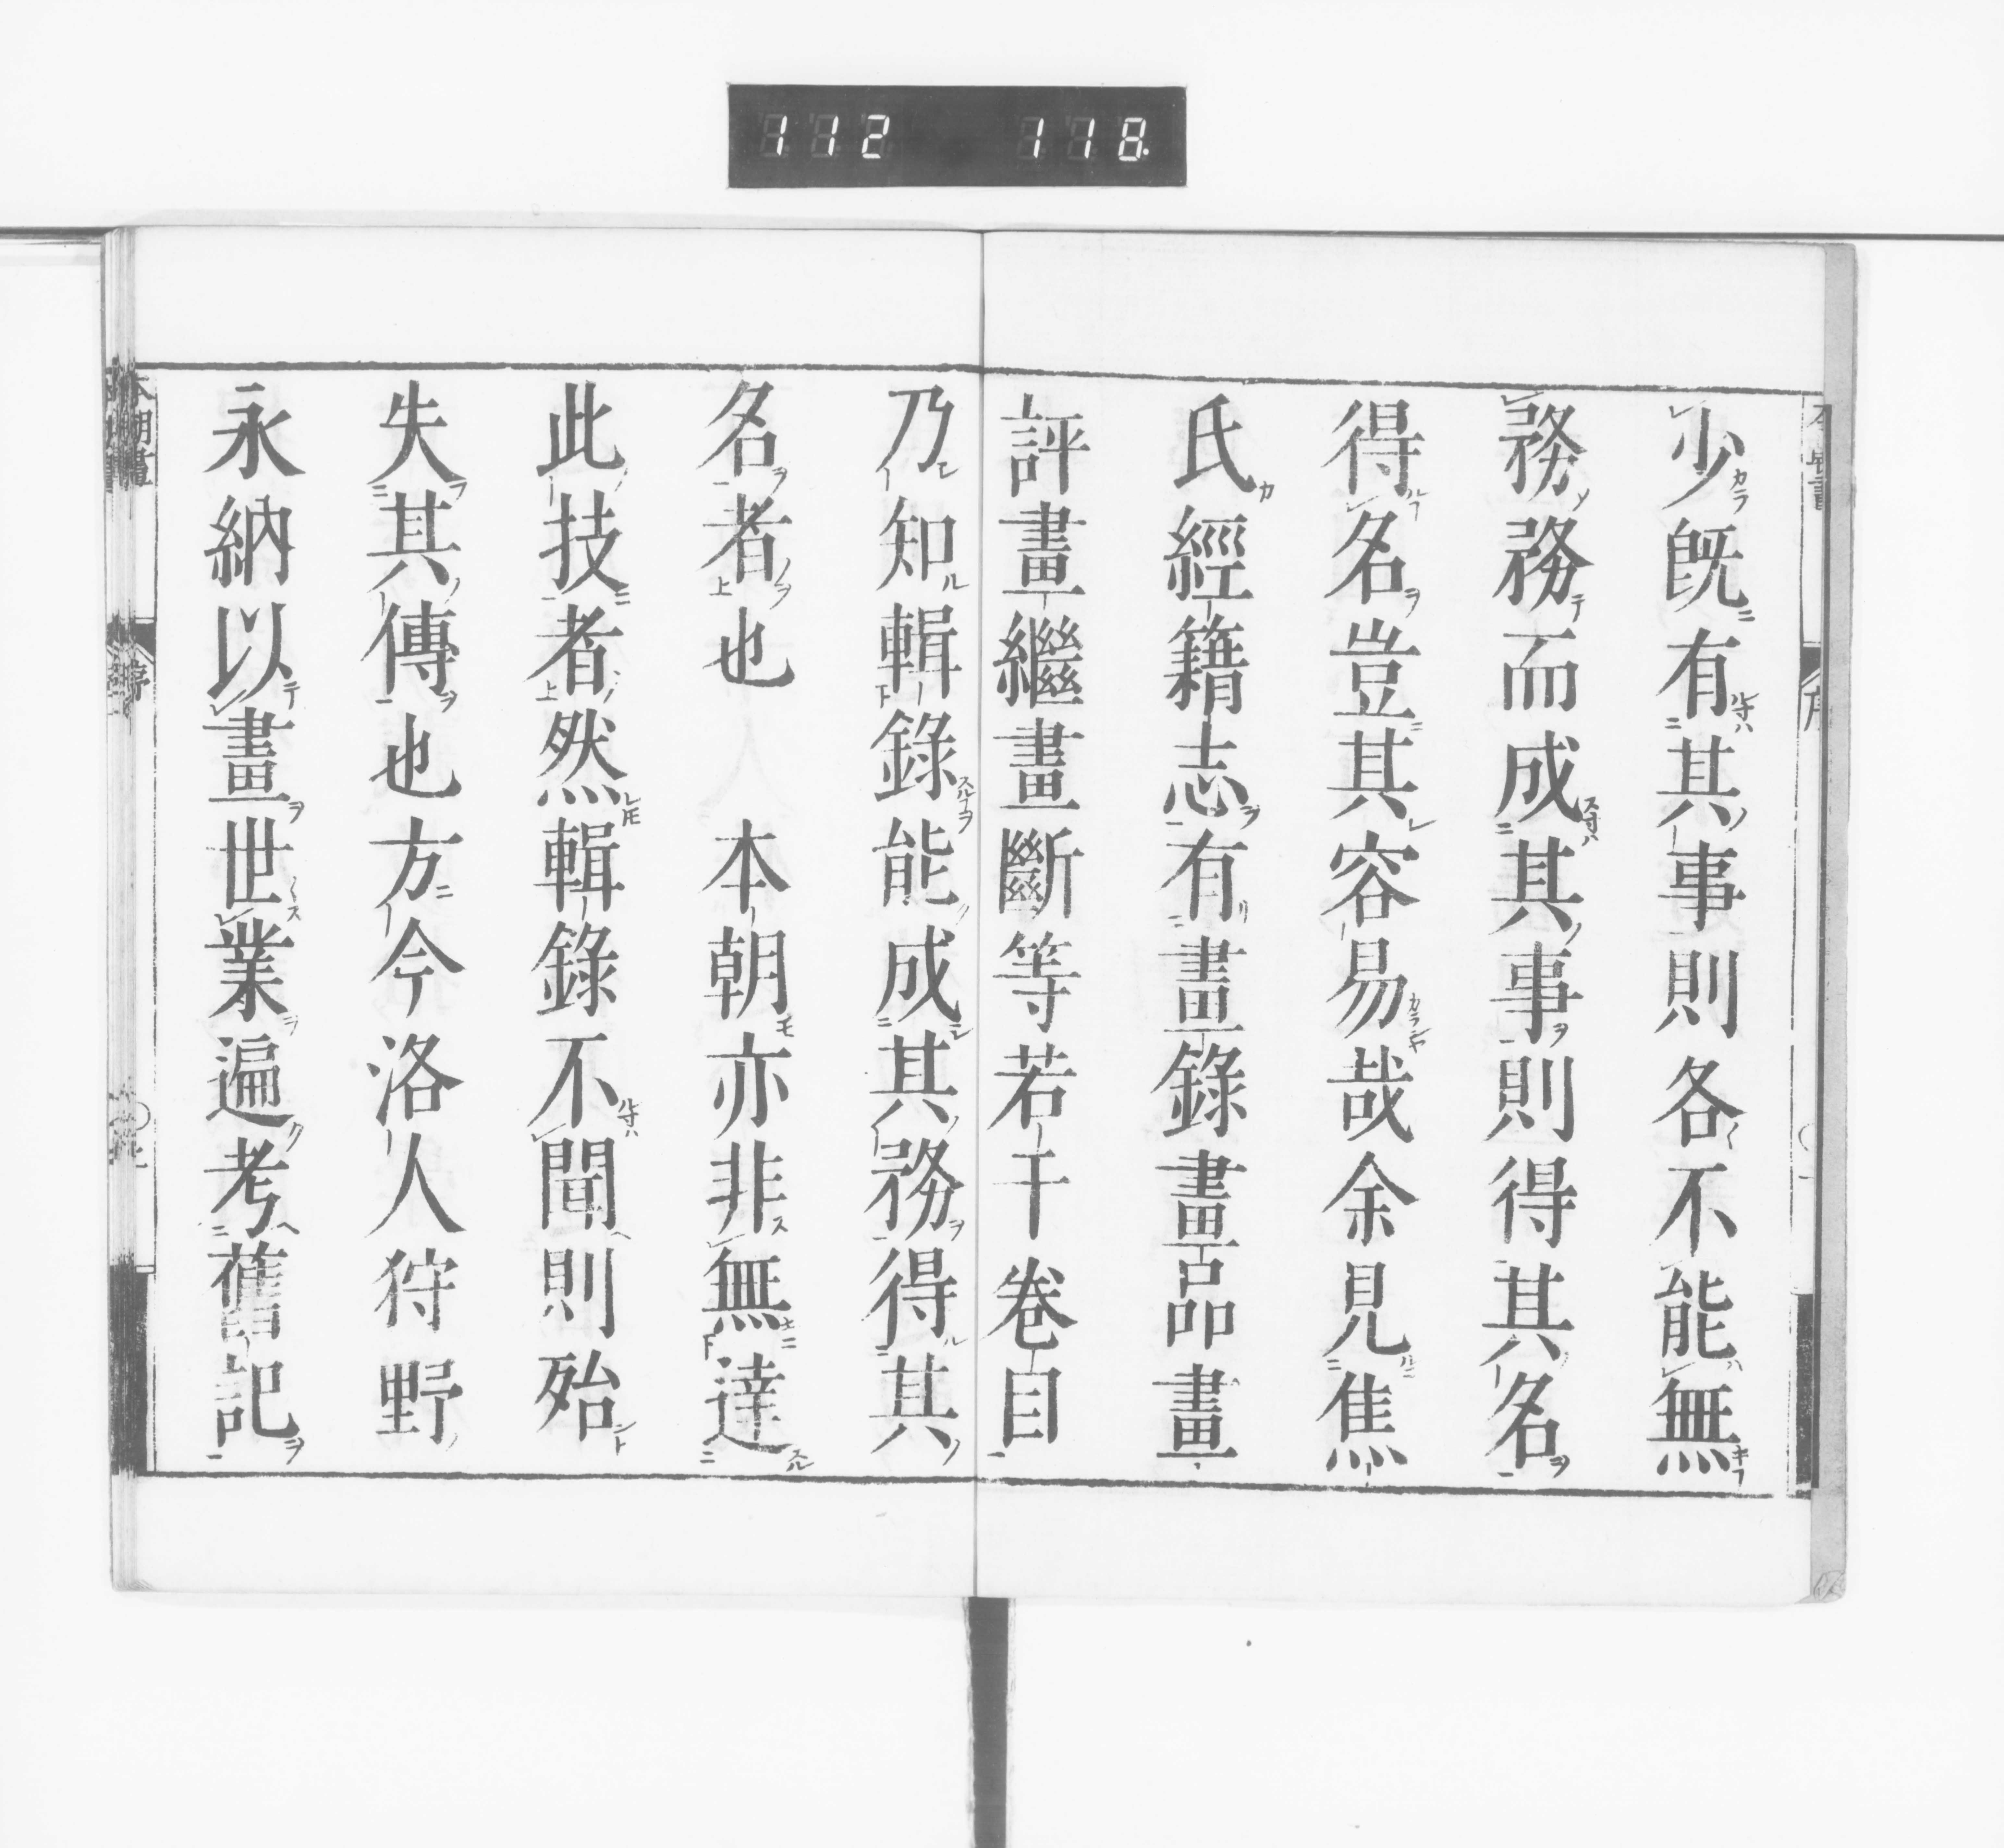 112 118
少既有其事則各不能無
務務而成其事則得其名
得名豈其容易哉余見焦
氏經籍志有畫錄畫品畫
評畫繼畫斷等若干卷目
乃知輯錄能成其務得其
名者也 本朝亦非無達
此技者然輯錄不聞則殆
失其傳也方今洛人狩野
永納以畫世業遍考舊記
序